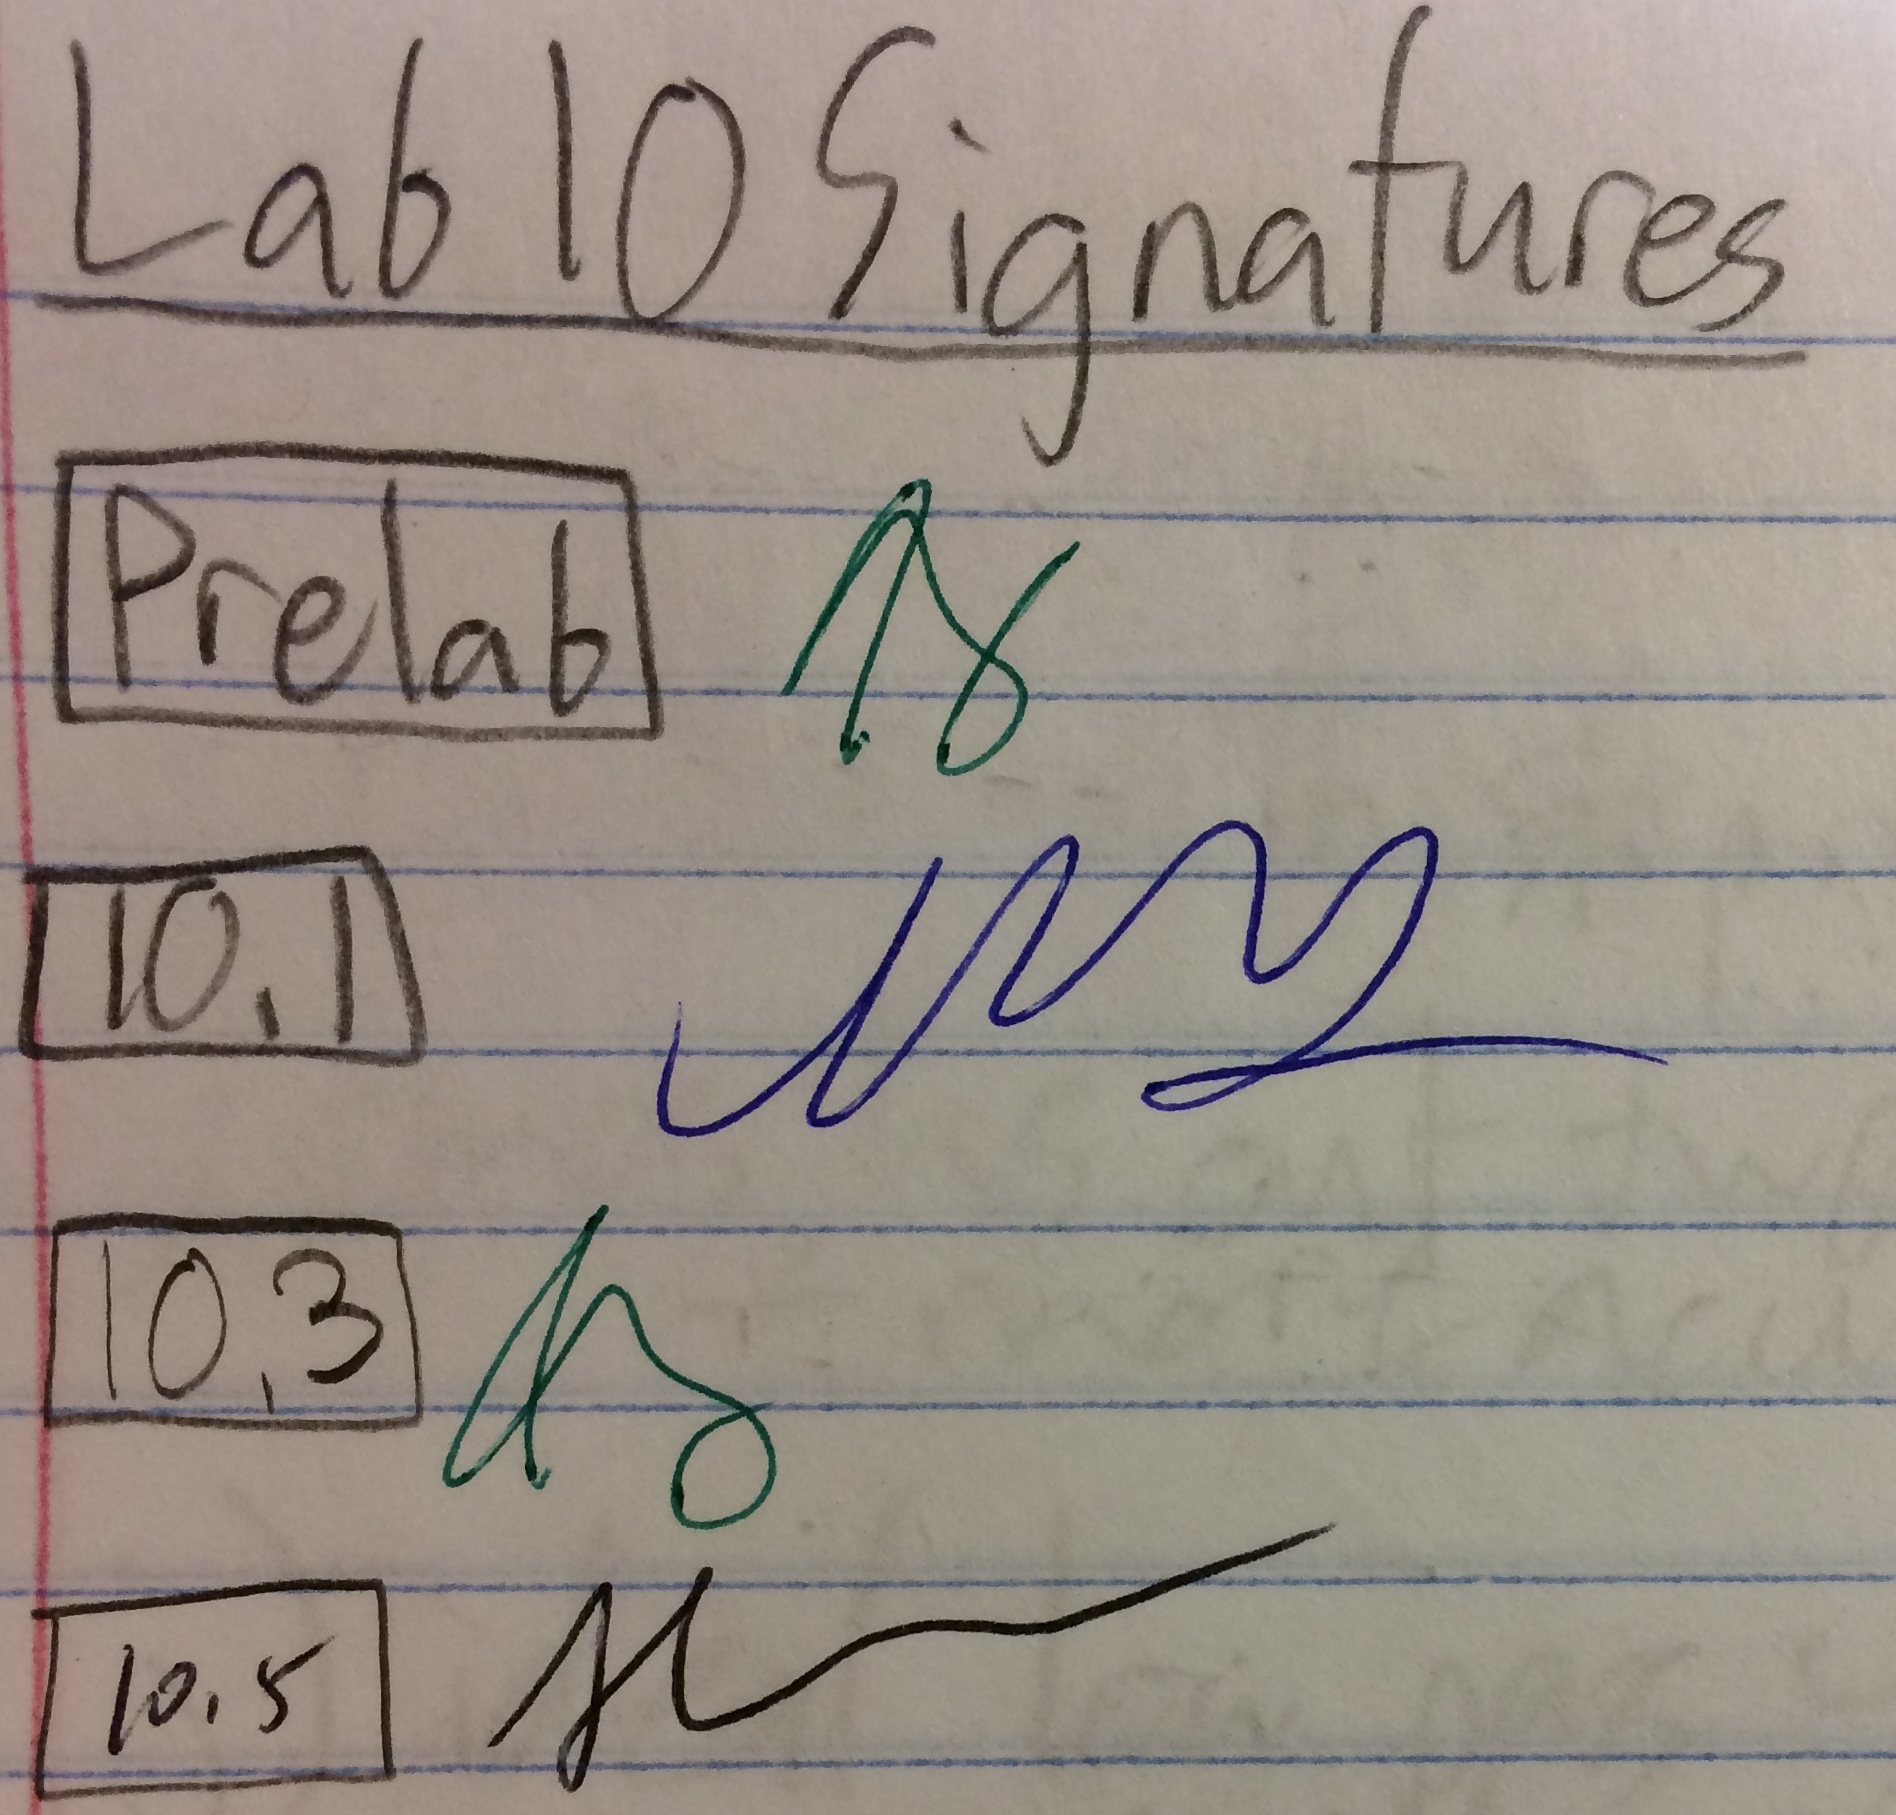 Lab 10 Signatures
Prelab
10.1
10.3
10.5